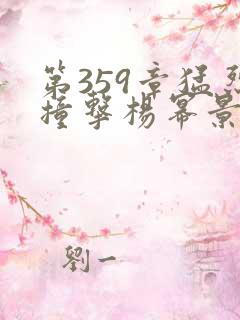 第359章猛烈
撞擊楊冪景
劉一